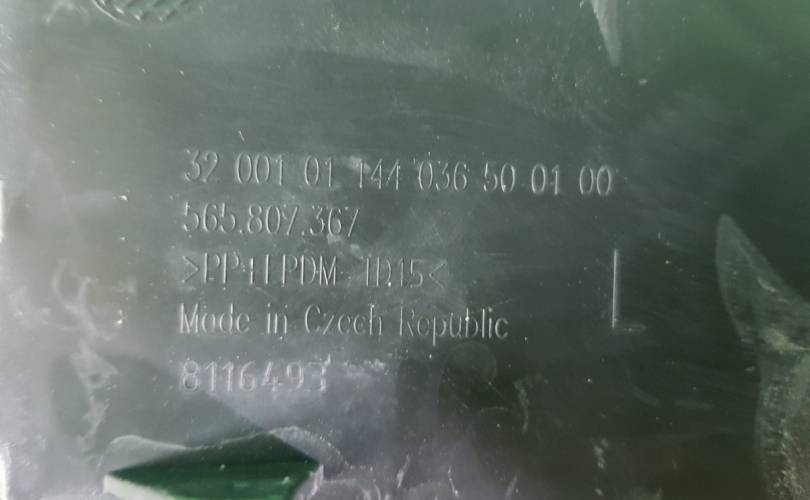 32 001 01 144 036 50 01 00
565.807.367
>PP+EPDM-TD15<
Made in Czech Republic
L
8116493